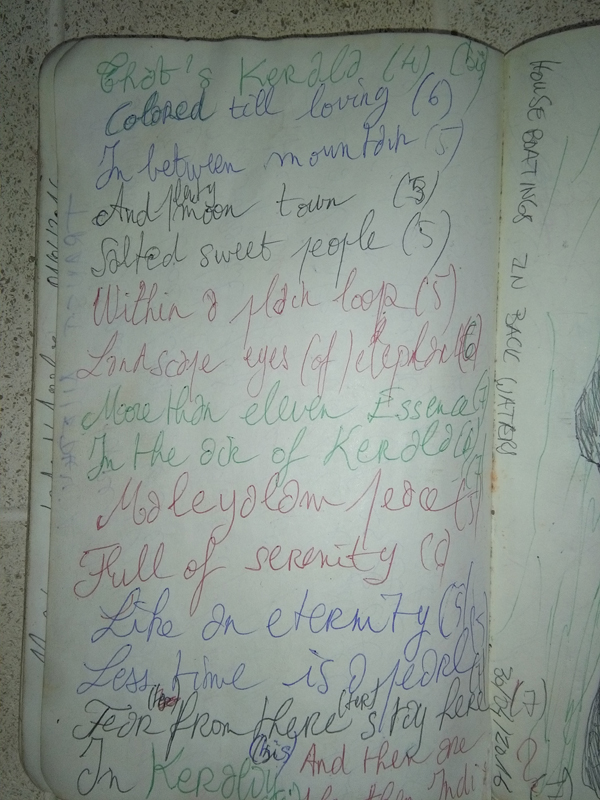 That's Kerala (4)
Colored till loving (6)
In between mountain (5)
And lady moon town (3)
Salted sweet people (5)
Within a place loop (5)
Landscape eyes (of) elephant (6)
More than eleven Essence (7)
In the air of Kerala (6)
Maleyalam peace (5)
Full of serenity (6)
Like an eternity (5)
Less time is a pearl
Far from there stay here (7)
In Kerala (bis) And then are
Indi
HOUSE BOATINGS IN BACK WATERS
30/04/2016